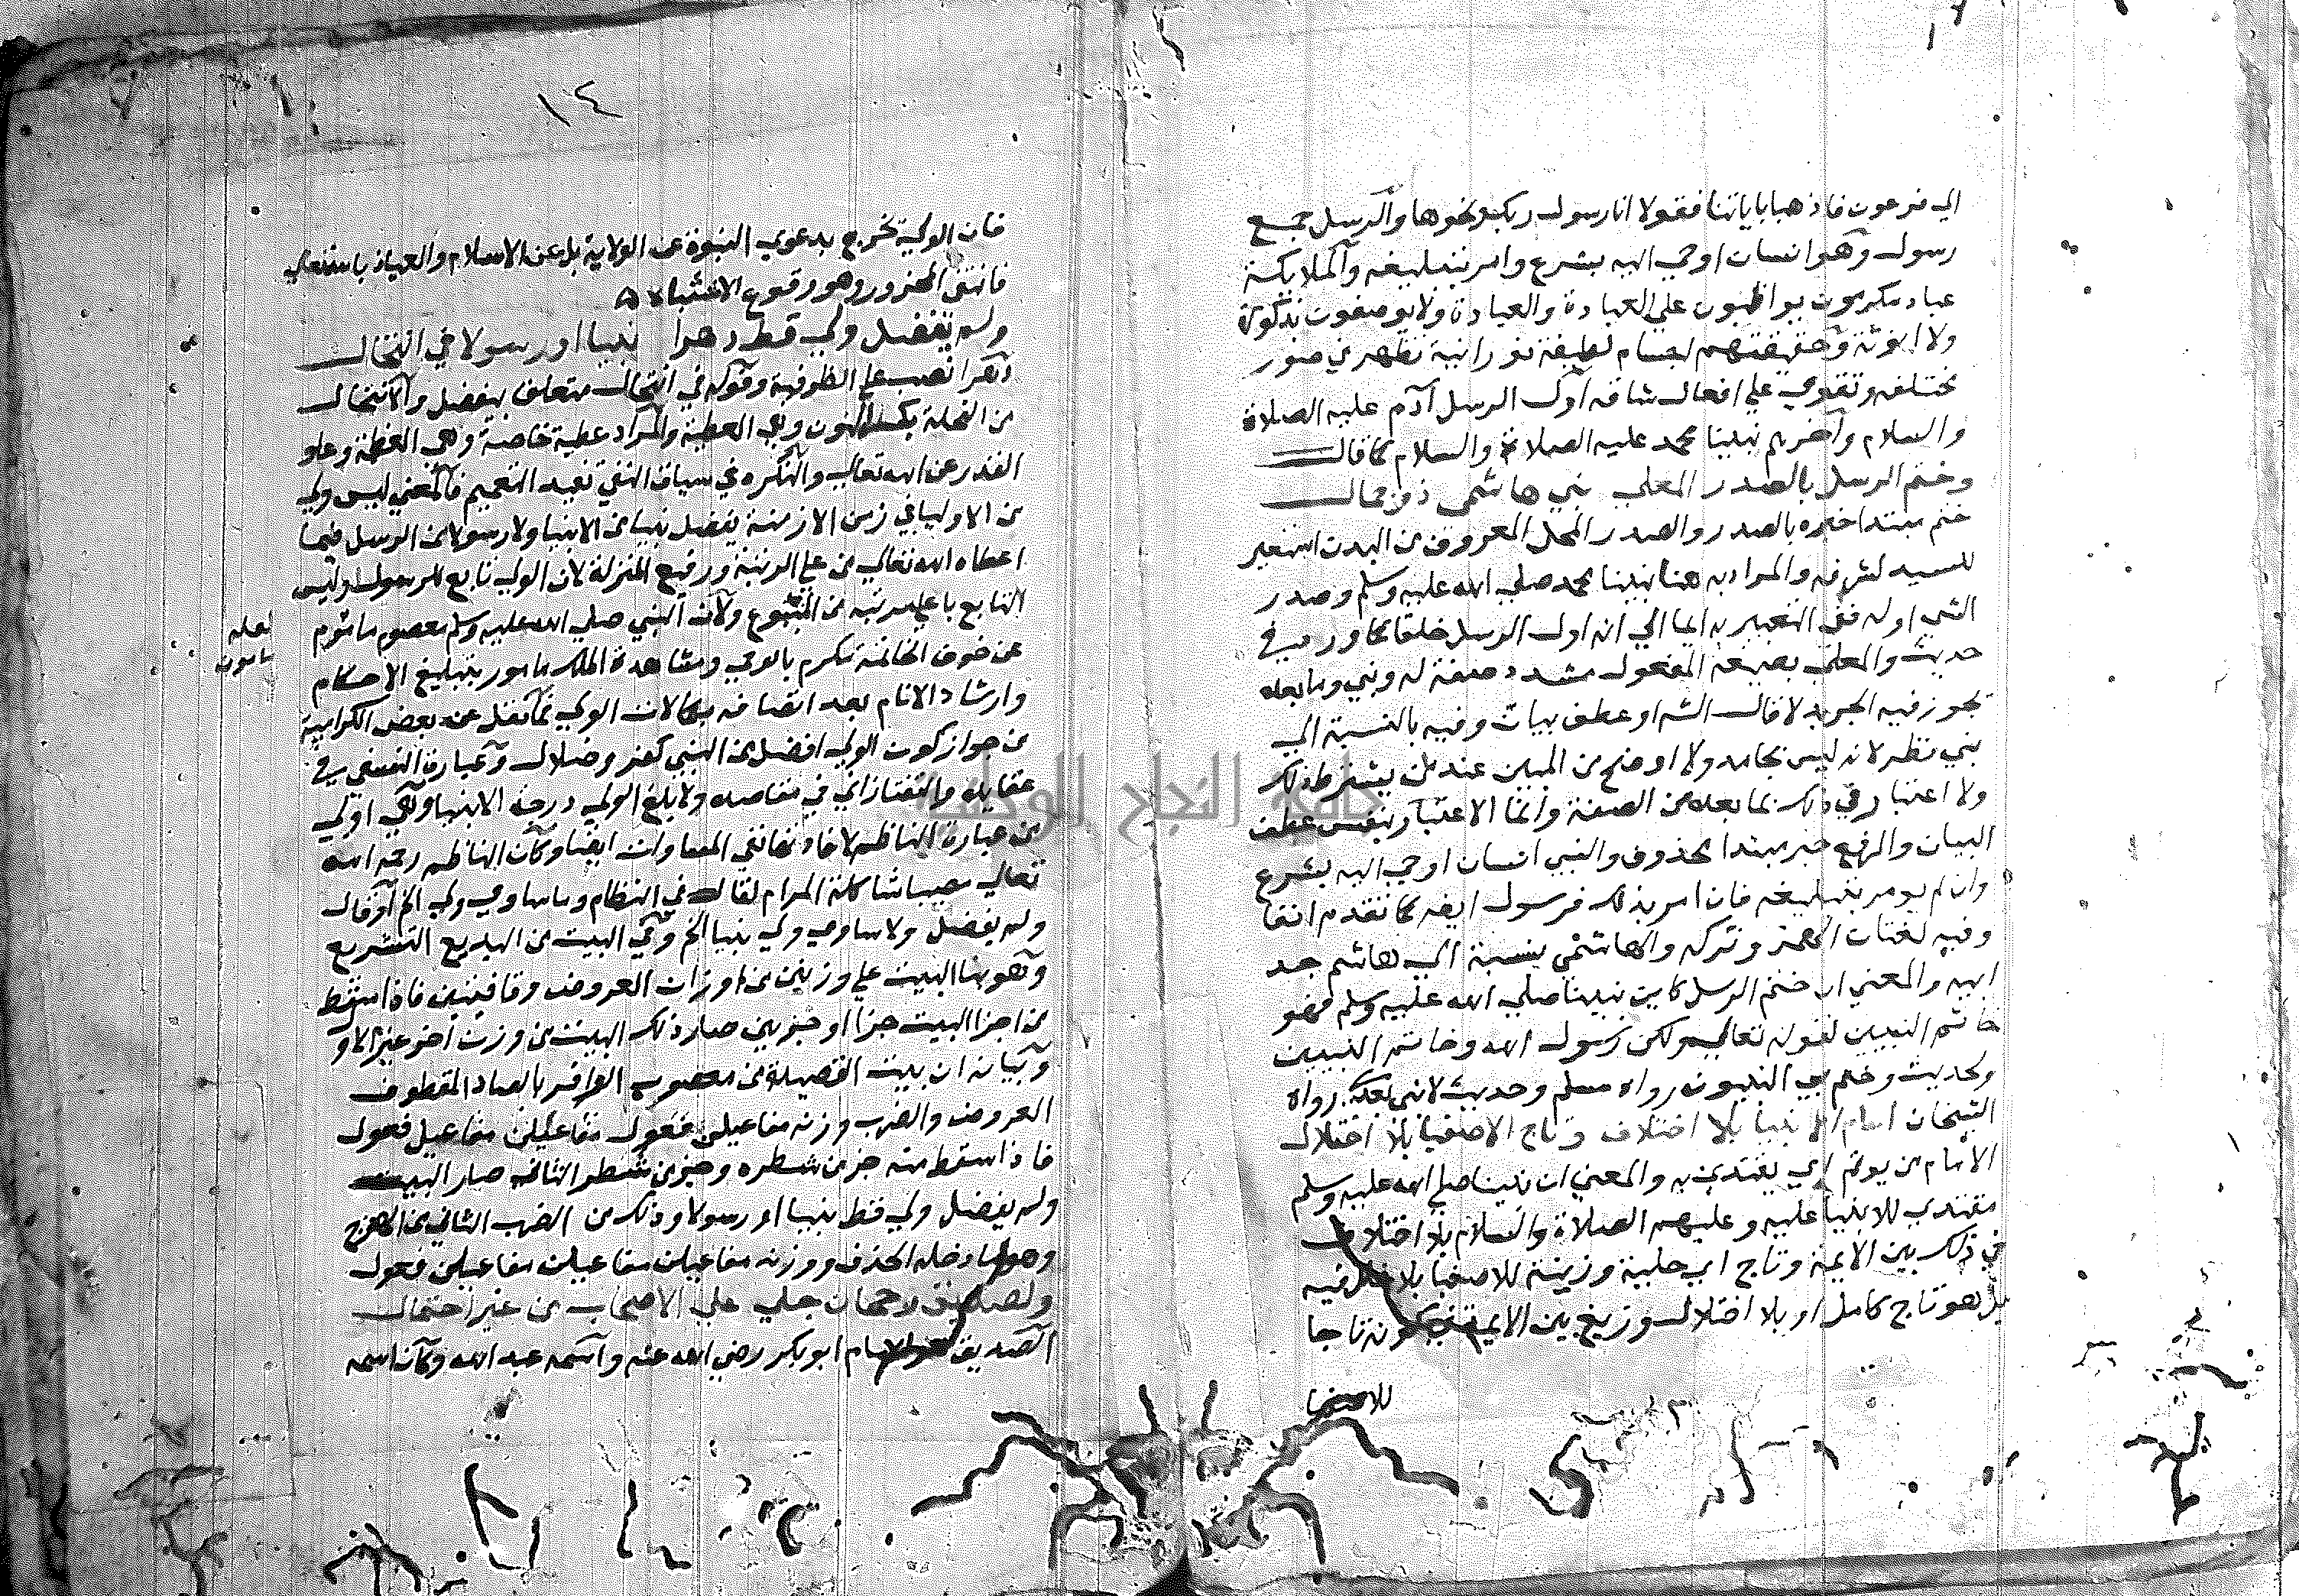 الي فرعون فاذهبا باياتنا فقولا انا رسول ربك ونحوها والرسل جمع
رسول وهو انسان اوحي اليه بشرع وامر بتبليغه والملايكة
عباد مكرمون يواظبون علي العبادة والعبادة ولا يوصفون بذكورة
ولا انوثة وحقيقتهم اجسام لطيفة نورانية تظهر في صور
مختلفه وتقوي علي افعال شاقه اول الرسل آدم عليه الصلاة
والسلام وآخرهم نبينا محمد عليه الصلاة والسلام كما قال
وختم الرسل بالصدر المعلي نبي هاشمي ذو جمال
ختم مبتدا خبره بالصدر والصدر المحل المعروف من البدن استعير
للسيد لشرفه والمراد به هنا نبينا محمد صلي الله عليه وسلم وصدر
الشي اوله ففي التعبير به ايما الي انه اول الرسل خلقا كما ورد في
حديث والمعلي بصيغة المفعول مشدد صفة له ونبي وما بعده
يجوز فيه الجر بدلا قال الشم او عطف بيان وفيه بالنسبة الي
نبي نظر لانه ليس بجامد ولا اوضح من المبين عند من يشترط ذلك
ولا اعتبار في ذلك بما بعده من الصفة وانما الاعتبار بنفس عطف
البيان والرفع خبر مبتدا محذوف والنبي انسان اوحي اليه بشرع
وان لم يومر بتبليغه فان امر بذلك فرسول ايضه كما تقدم انفا
وفيه لغتان الهمز وتركه والهاشمي نسبة الي هاشم جد
ابيه والمعني ان ختم الرسل كاين بنبينا صلي الله عليه وسلم فهو
خاتم النبيين لقوله تعالي ولكن رسول الله وخاتم النبيين
ولحديث وختم بي النبيون رواه مسلم وحديث لا نبي بعدي رواه
الشيخان امام الانبيا بلا اختلاف وتاج الاصفيا بلا اختلال
الامام من يوتم اي يقتدي به والمعني ان نبينا صلي الله عليه وسلم
مقتدي للانبيا عليه وعليهم الصلاة والسلام بلا اختلاف
في ذلك بين الايمة وتاج اي حلية وزينة للاصفيا بلا خلل فيه
بل هو تاج كامل او بلا اختلال وزيغ بين الايمة في كونه تاجا
للاصفيا
١٤
فان الولي يخرج بدعوي النبوة عن الولاية بل عن الاسلام والعياذ بالله تعالي
فانتفي المحذور وهو وقوع الاشتباه
ولم يفضل ولي قط دهرا نبيا او رسولا في انتحال
دهرا نصب علي الظرفية وقوله في انتحال متعلق بيفضل والانتحال
من النحلة بكسر النون وهي العطية والمراد عطية خاصة وهي العظمة وعلو
القدر عن الله تعالي والنكره في سياق النفي تفيد التعميم فالمعني ليس ولي
من الاوليا في زمن الازمنة يفضل نبيا من الانبيا ولا رسولا من الرسل فيما
اعطاه الله تعالي من علي الرتبة ورفيع المنزلة لان الولي تابع للرسول وليس
التابع باعلي مرتبه من المتبوع ولان النبي صلي الله عليه وسلم معصوم مامور
لعله
مامون
عن خوف الخاتمة مكرم بالوحي ومشاهدة الملك مامور بتبليغ الاحكام
وارشاد الانام بعد اتصافه بكمالات الولي فما نقل عن بعض الكرامية
من جواز كون الولي افضل من النبي كفر وضلال وعبارة النسفي في
عقايده والتفتازاني في مقاصده ولا يبلغ الولي درجة الانبيا وهي اولي
من عبارة الناظم لافادتها نفي المساوات ايضا وكان الناظم رحمه الله
تعالي مصيبا شاكلة المرام لو قال في النظام وما ساوي ولي الخ او قال
ولم يفضل ولا ساوي ولي نبيا الخ وفي البيت من البديع التشريع
وهو بنا البيت علي وزنين من اوزان العروض وقافيتين فاذا اسقط
من اجزا البيت جزا او جزيين صار ذلك البيت من وزن اخر غير الاو
وبيانه ان بيت القصيدة من معصوب الوافر بالصاد المقطوف
العروض والضرب وزنه مفاعيلن فعول مفاعيلن مفاعيل فعول
فاذا سقط منه جز من شطره وجز من شطر الثاني صار البيت
ولم يفضل ولي قط نبيا او رسولا وذلك من الضرب الثاني من الهزج
وهو ما دخله الحذف ووزنه مفاعيلن مفاعيلن مفاعيلن فعول
وللصديق رجحان جلي علي الاصحاب من غير احتمال
الصديق هو الامام ابو بكر رضي الله عنه واسمه عبد الله وكان اسمه
جامعة النجاح الوطنية